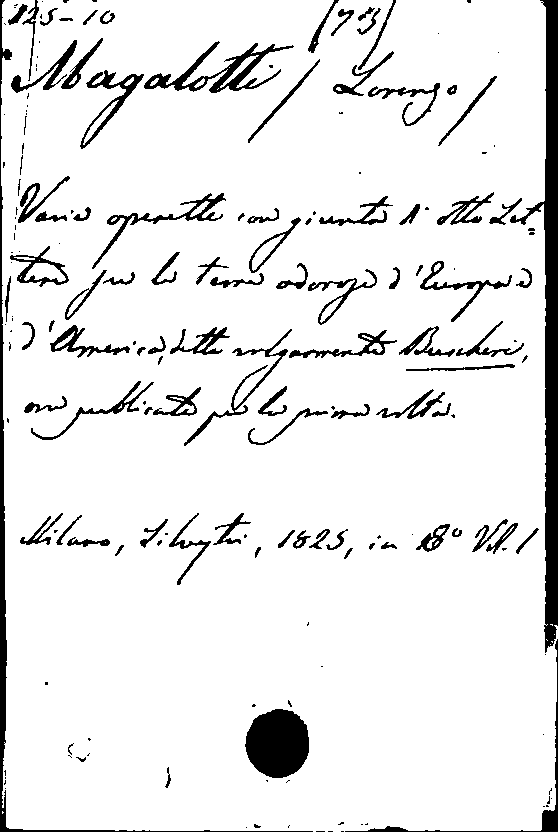 125-10 (73)
Magalotti / Lorenzo /
Varie operette con giunta d'otto Let=
tere su le terre odorose d'Europa e
d'America, dette volgarmente Buccheri,
ora pubblicate per la prima volta.
Milano, Silvestri, 1825, in 8° Vol. 1